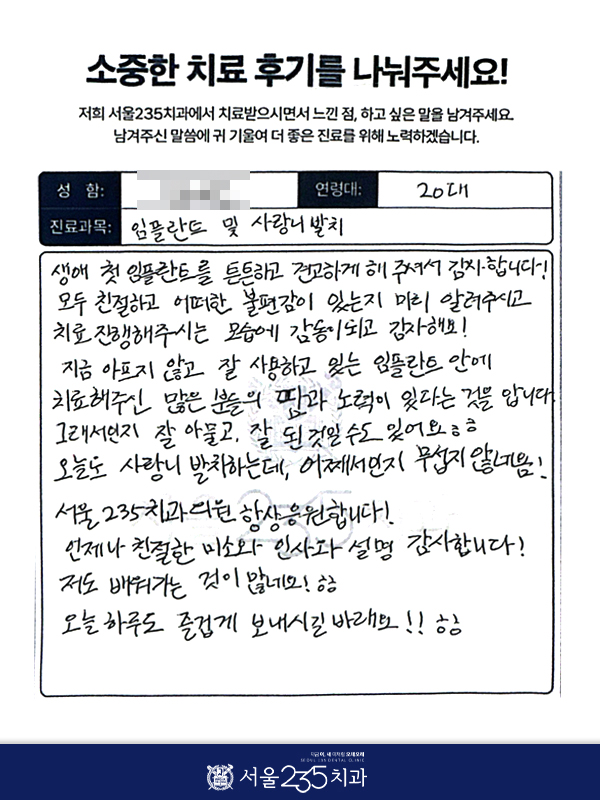 소중한 치료 후기를 나눠주세요!
저희 서울235치과에서 치료받으시면서 느낀 점, 하고 싶은 말을 남겨주세요.
남겨주신 말씀에 귀 기울여 더 좋은 진료를 위해 노력하겠습니다.
성 함:
연령대: 20대
진료과목: 임플란트 및 사랑니 발치
생애 첫 임플란트를 튼튼하고 견고하게 해 주셔서 감사합니다!
모두 친절하고 어떠한 불편감이 있는지 미리 알려주시고
치료 진행해주시는 모습에 감동이 되고 감사해요!
지금 아프지 않고 잘 사용하고 있는 임플란트 안에
치료해주신 많은 분들의 땀과 노력이 있다는 것을 압니다.
그래서인지 잘 아물고, 잘 된 것일 수도 있어요 ㅎㅎ
오늘도 사랑니 발치하는데, 어째서인지 무섭지 않네욤!
서울 235치과의원 항상 응원합니다!
언제나 친절한 미소와 인사과 설명 감사합니다!
저도 배워가는 것이 많네요! ㅎㅎ
오늘 하루도 즐겁게 보내시길 바래요!! ㅎㅎ
서울235치과